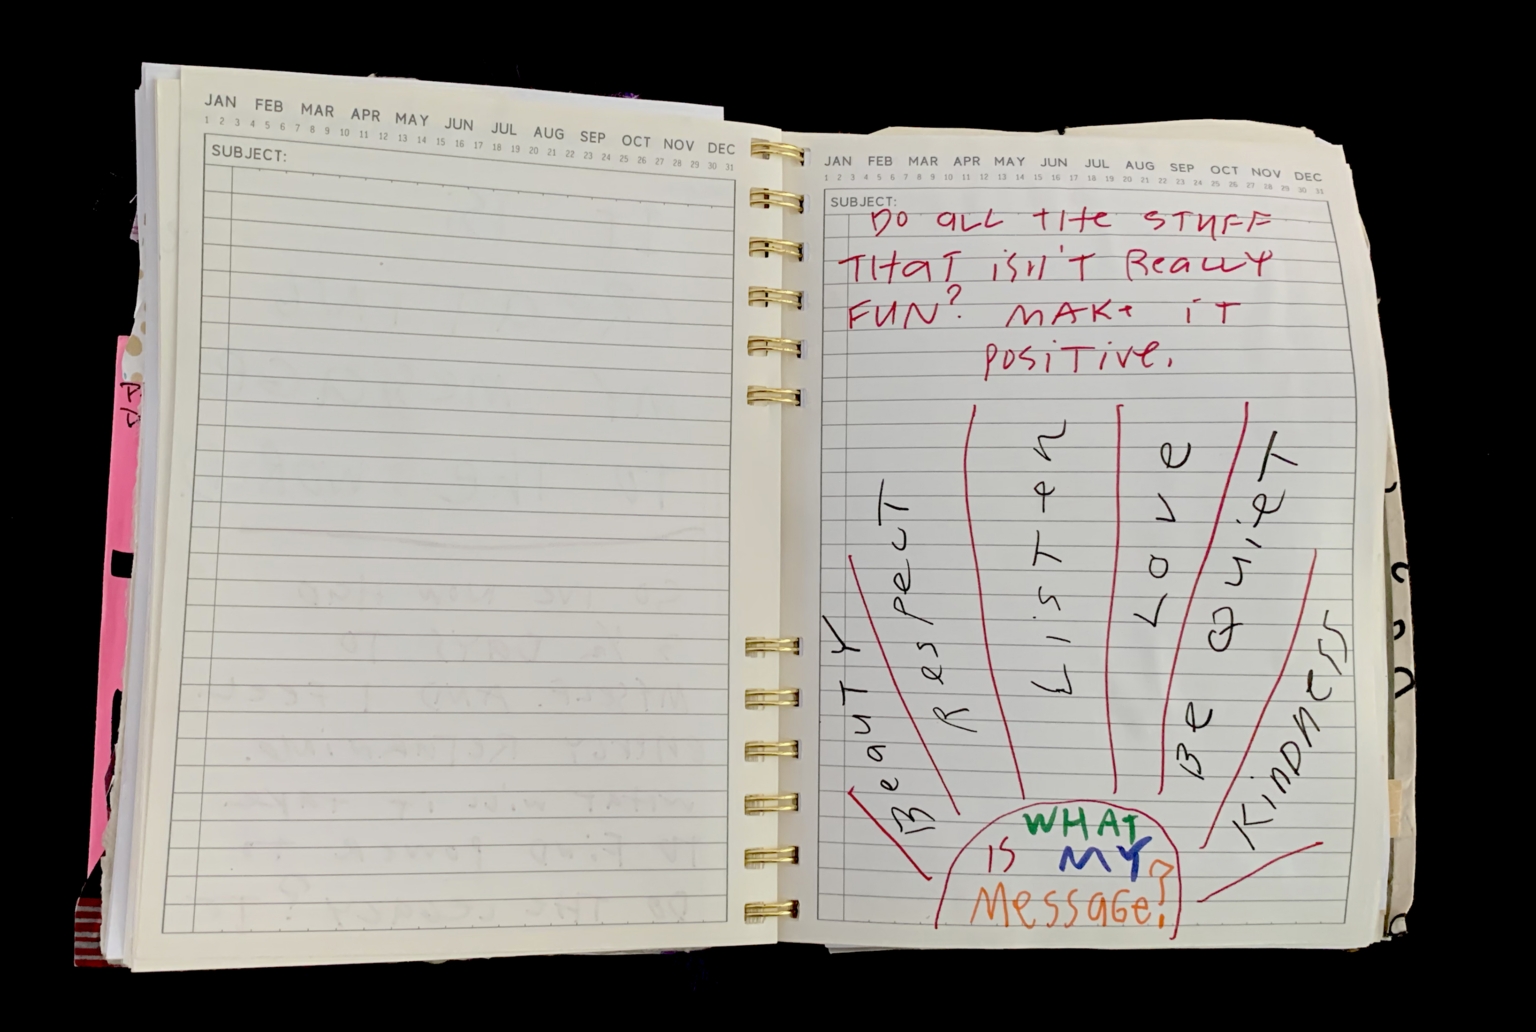 JAN FEB MAR APR MAY JUN JUL AUG SEP OCT NOV DEC
1 2 3 4 5 6 7 8 9 10 11 12 13 14 15 16 17 18 19 20 21 22 23 24 25 26 27 28 29 30 31
SUBJECT:
JAN FEB MAR APR MAY JUN JUL AUG SEP OCT NOV DEC
1 2 3 4 5 6 7 8 9 10 11 12 13 14 15 16 17 18 19 20 21 22 23 24 25 26 27 28 29 30 31
SUBJECT:
DO ALL THE STUFF
THAT ISN'T REALLY
FUN? MAKE IT
POSITIVE.
BEAUTY
RESPECT
LISTEN
LOVE
BE QUIET
KINDNESS
WHAT
IS MY
MESSAGE?